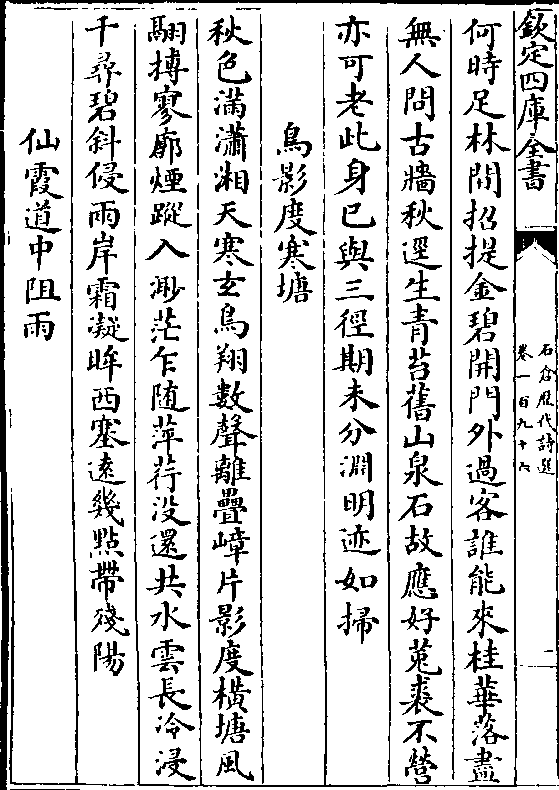 欽定四庫全書
石倉歷代詩選
卷一百九十六
二
何時足林間招提金碧開門外過客誰能來桂華落盡
無人問古牆秋選生青苔舊山泉石故應好莵裘不營
亦可老此身已與三徑期未分淵明迹如掃
鳥影度寒塘
秋色滿瀟湘天寒玄鳥翔數聲離疊嶂片影度橫塘風
翮摶寥廓煙蹤入渺茫乍随萍荇没還共水雲長冷浸
千尋碧斜侵兩岸霜凝眸西塞遠幾點帶殘陽
仙霞道中阻雨